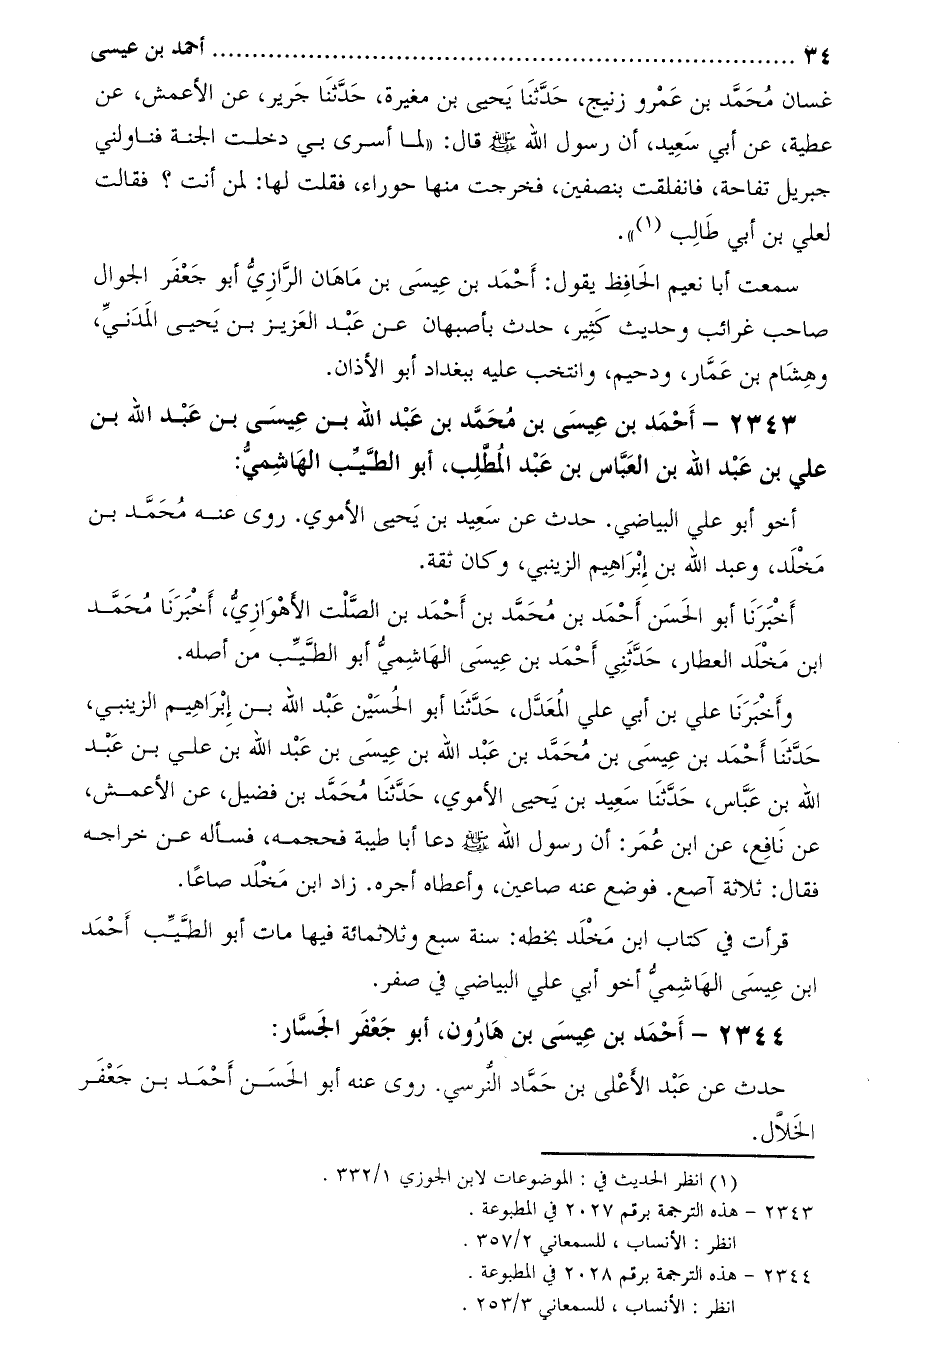 ٣٤ ........................................................................ أحمد بن عيسى
غسان مُحَمَّد بن عَمْرو زنيج، حَدَّثنَا يَحيى بن مغيرة، حَدَّثنَا جَرير، عن الأعمش، عن
عطية، عن أبي سَعِيد، أن رسول الله ﷺ قال: «لما أسرى بي دخلت الجنة فناولني
جبريل تفاحة، فانفلقت بنصفين، فخرجت منها حوراء، فقلت لها: لمن أنت ؟ فقالت
لعلي بن أبي طَالِب (١)».
سمعت أبا نعيم الحَافِظ يقول: أَحْمَد بن عِيسَى بن مَاهَان الرَّازِيُّ أبو جَعْفَر الجوال
صاحب غرائب وحديث كَثِير، حدث بأصبهان عن عَبْد العَزيز بن يَحيى المَدَنيِّ،
وهِشَام بن عَمَّار، ودحيم، وانتخب عليه ببغداد أبو الأذان.
٢٣٤٣ - أَحْمَد بن عِيسَى بن مُحَمَّد بن عَبْد الله بن عِيسَى بن عَبْد الله بن
علي بن عَبْد الله بن العَبَّاس بن عَبْد المُطَّلِب، أبو الطَّيِّب الهَاشِميُّ:
أخو أبو علي البياضي. حدث عن سَعِيد بن يَحيى الأموي. روى عنه مُحَمَّد بن
مَخْلَد، وعبد الله بن إِبْرَاهِيم الزينبي، وكان ثقة.
أَخْبَرَنَا أبو الحَسَن أَحْمَد بن مُحَمَّد بن أَحْمَد بن الصَّلْت الأَهْوَازِيُّ، أَخْبَرَنَا مُحَمَّد
ابن مَخْلَد العطار، حَدَّثَنِي أَحْمَد بن عِيسَى الهَاشِميُّ أبو الطَّيِّب من أصله.
وأَخْبَرَنَا علي بن أبي علي المُعَدَّل، حَدَّثنَا أبو الحُسَيْن عَبْد الله بن إِبْرَاهِيم الزينبي،
حَدَّثنَا أَحْمَد بن عِيسَى بن مُحَمَّد بن عَبْد الله بن عِيسَى بن عَبْد الله بن علي بن عَبْد
الله بن عَبَّاس، حَدَّثنَا سَعِيد بن يَحيى الأموي، حَدَّثنَا مُحَمَّد بن فضيل، عن الأعمش،
عن نَافِع، عن ابن عُمَر: أن رسول الله ﷺ دعا أبا طيبة فحجمه، فسأله عن خراجه
فقال: ثلاثة آصع. فوضع عنه صاعين، وأعطاه أجره. زاد ابن مَخْلَد صاعًا.
قرأت في كتاب ابن مَخْلَد بخطه: سنة سبع وثلاثمائة فيها مات أبو الطَّيِّب أَحْمَد
ابن عِيسَى الهَاشِميُّ أخو أبي علي البياضي في صفر.
٢٣٤٤ - أَحْمَد بن عِيسَى بن هَارُون، أبو جَعْفَر الجَسَّار:
حدث عن عَبْد الأَعْلى بن حَمَّاد النُّرسي. روى عنه أبو الحَسَن أَحْمَد بن جَعْفَر
الخَلاَّل.
(١) انظر الحديث في : الموضوعات لابن الجوزي ٣٣٢/١ .
٢٣٤٣ - هذه الترجمة برقم ٢٠٢٧ في المطبوعة .
انظر : الأنساب ، للسمعاني ٣٥٧/٢ .
٢٣٤٤ - هذه الترجمة برقم ٢٠٢٨ في المطبوعة .
انظر : الأنساب ، للسمعاني ٢٥٣/٣ .